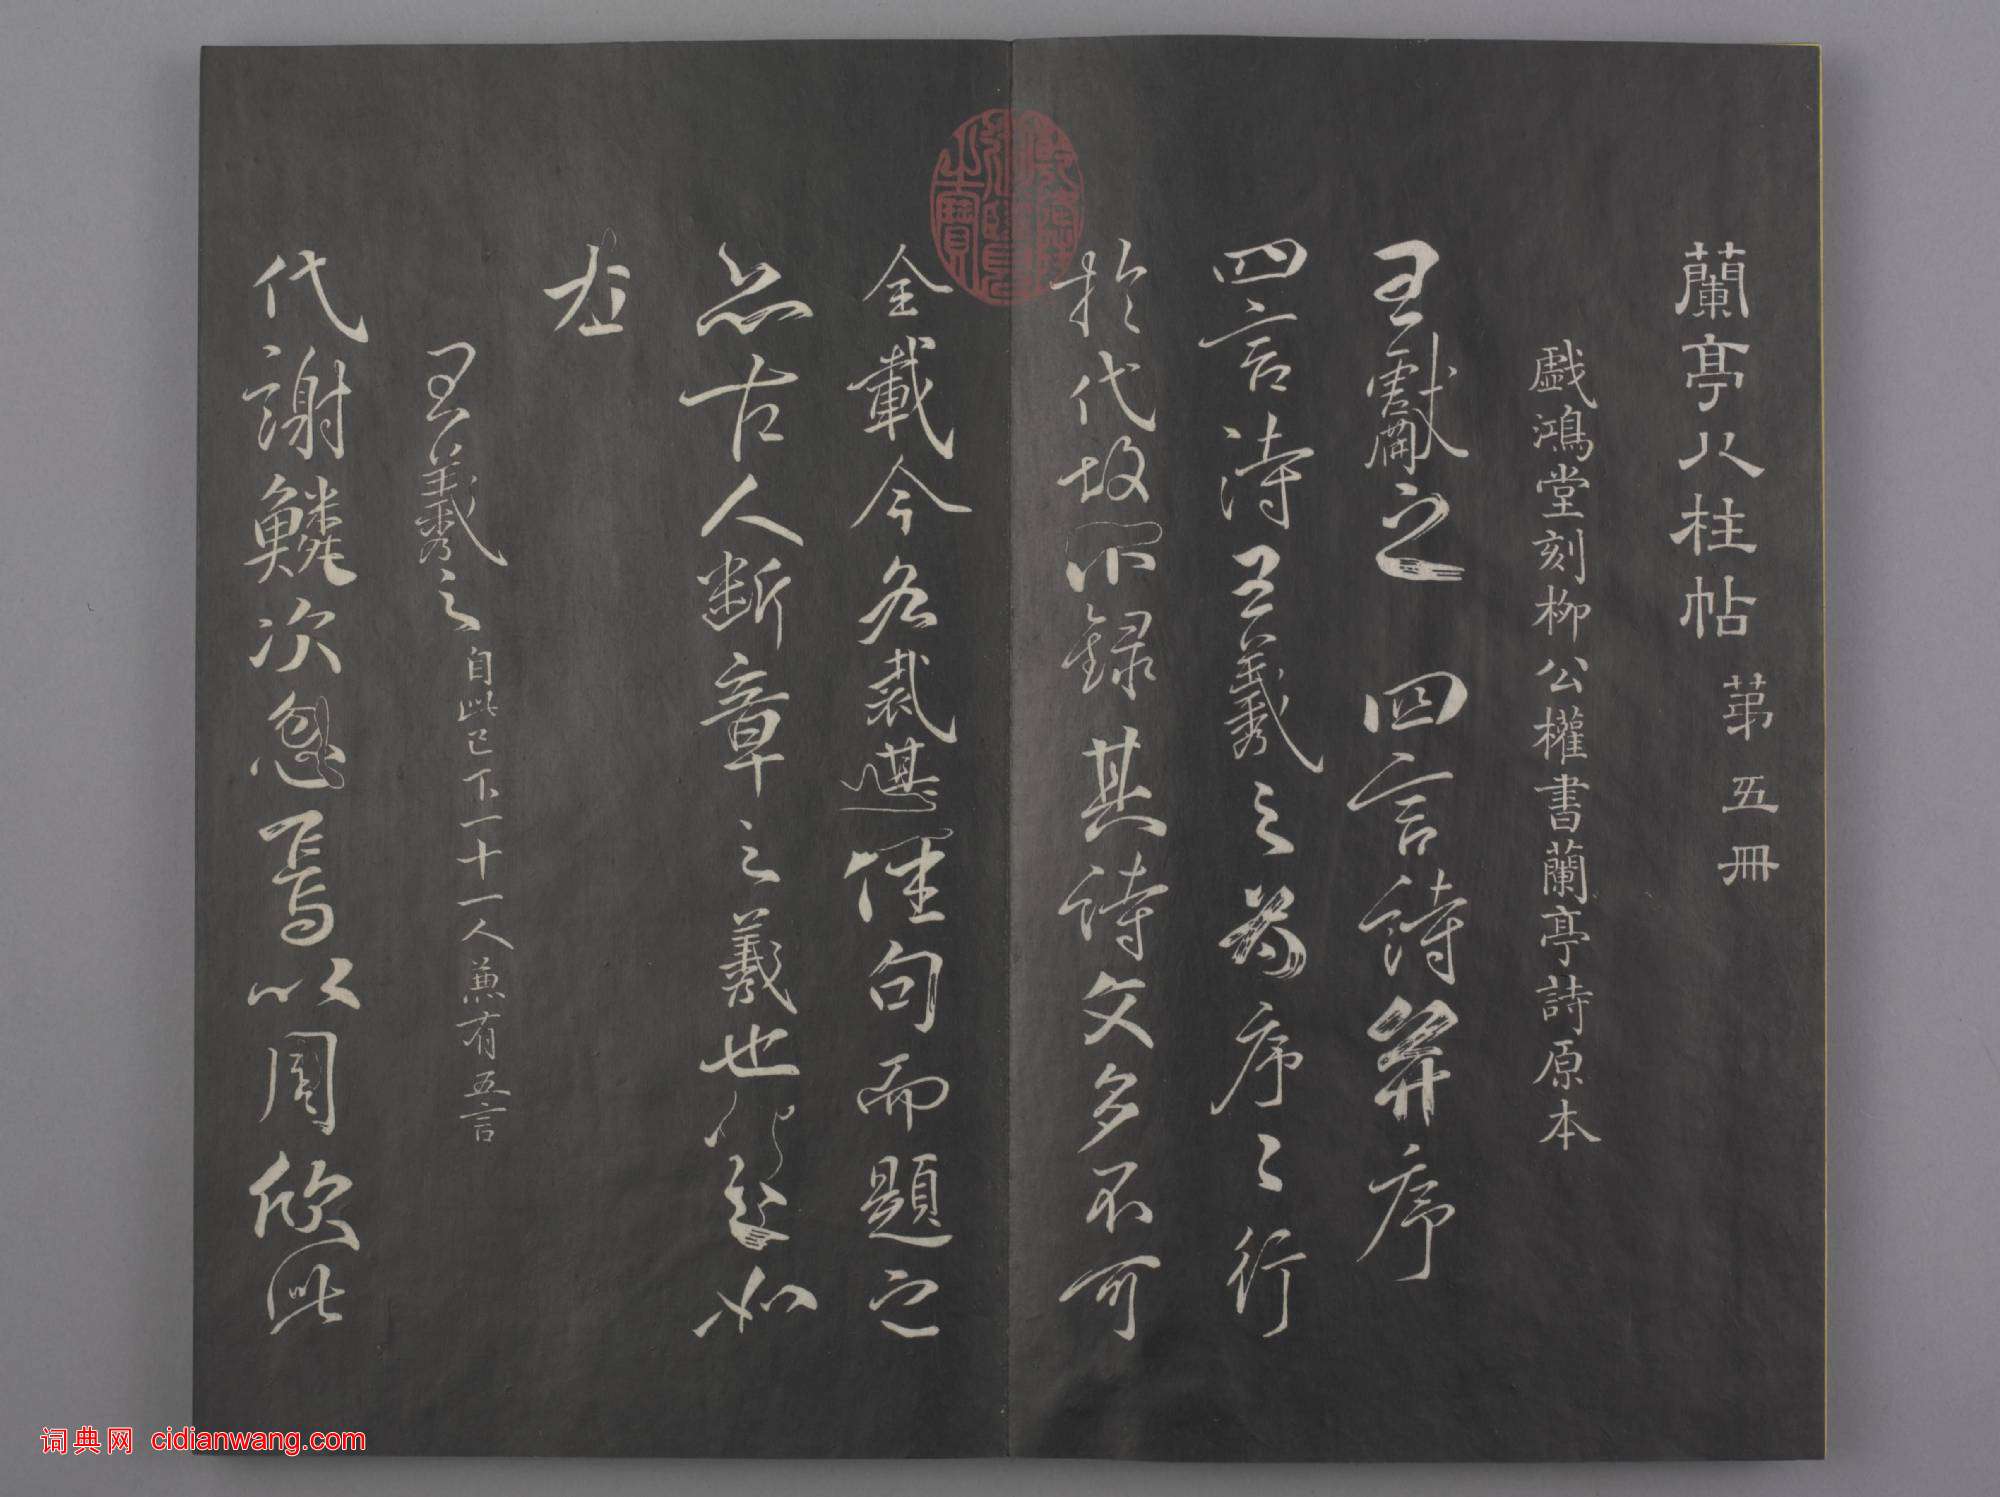 蘭亭八柱帖 第五冊
戲鴻堂刻柳公權書蘭亭詩原本
王獻之 四言詩并序
四言詩王羲之為序序行
於代故不錄其詩文多不可
全載今各裁其佳句而題之
亦古人斷章之義也 如
左
王羲之 自此已下十一人兼有五言
代謝鱗次忽焉以周欣此
词典网 cidianwang.com